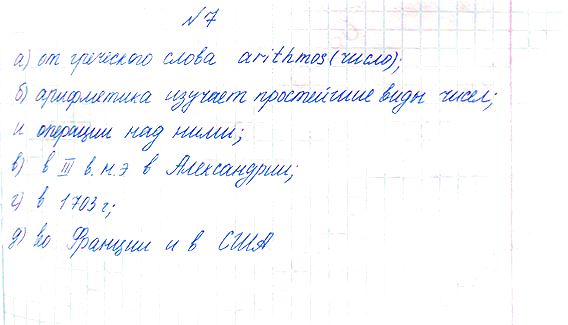 №7
а) от греческого слова arithmos (число);
б) арифметика изучает простейшие виды чисел;
и операции над ними;
в) в III в.н.э в Александрии;
г) в 1703 г;
д) во Франции и в США